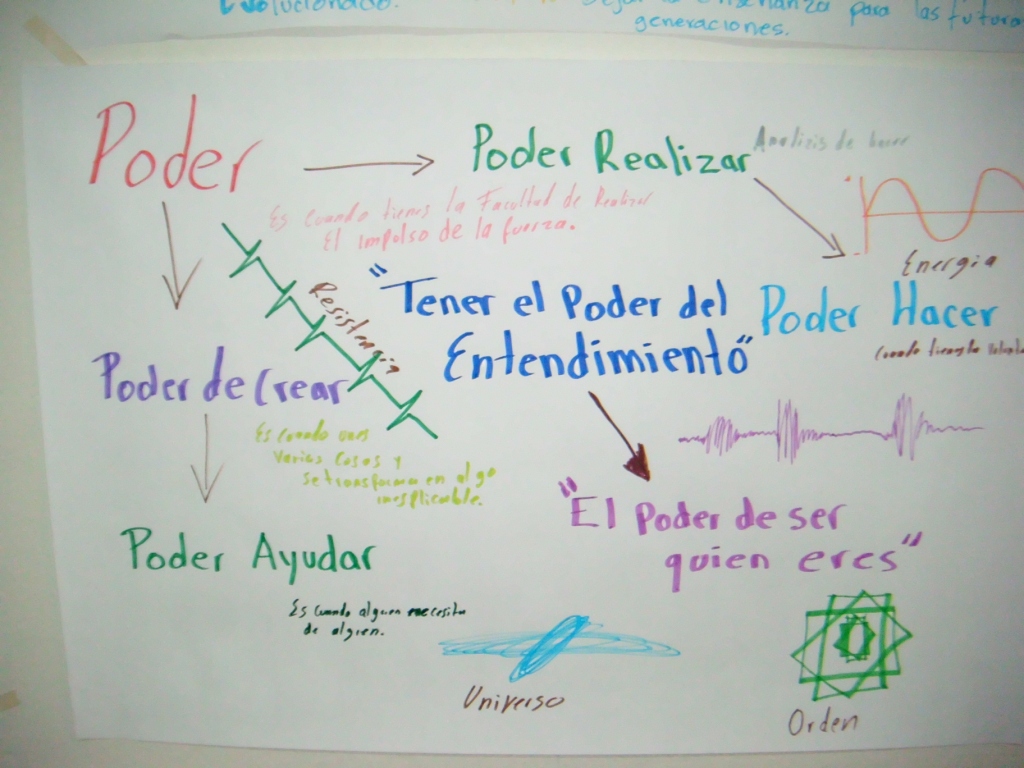 Evolucionado.
Dejar la enseñanza para las futuras
generaciones.
Poder
Poder Realizar
Analisis de hacer
Es cuando tienes la Facultad de Realizar
El impolso de la fuerza.
Energia
Resistencia
"Tener el Poder del
Entendimiento"
Poder Hacer
Cuando tienes la
Poder de Crear
Es cuando unes
varias cosas y
se transforma en algo
inesplicable.
"El poder de ser
quien eres"
Poder Ayudar
Es cuando alguien necesita
de algien.
Universo
Orden